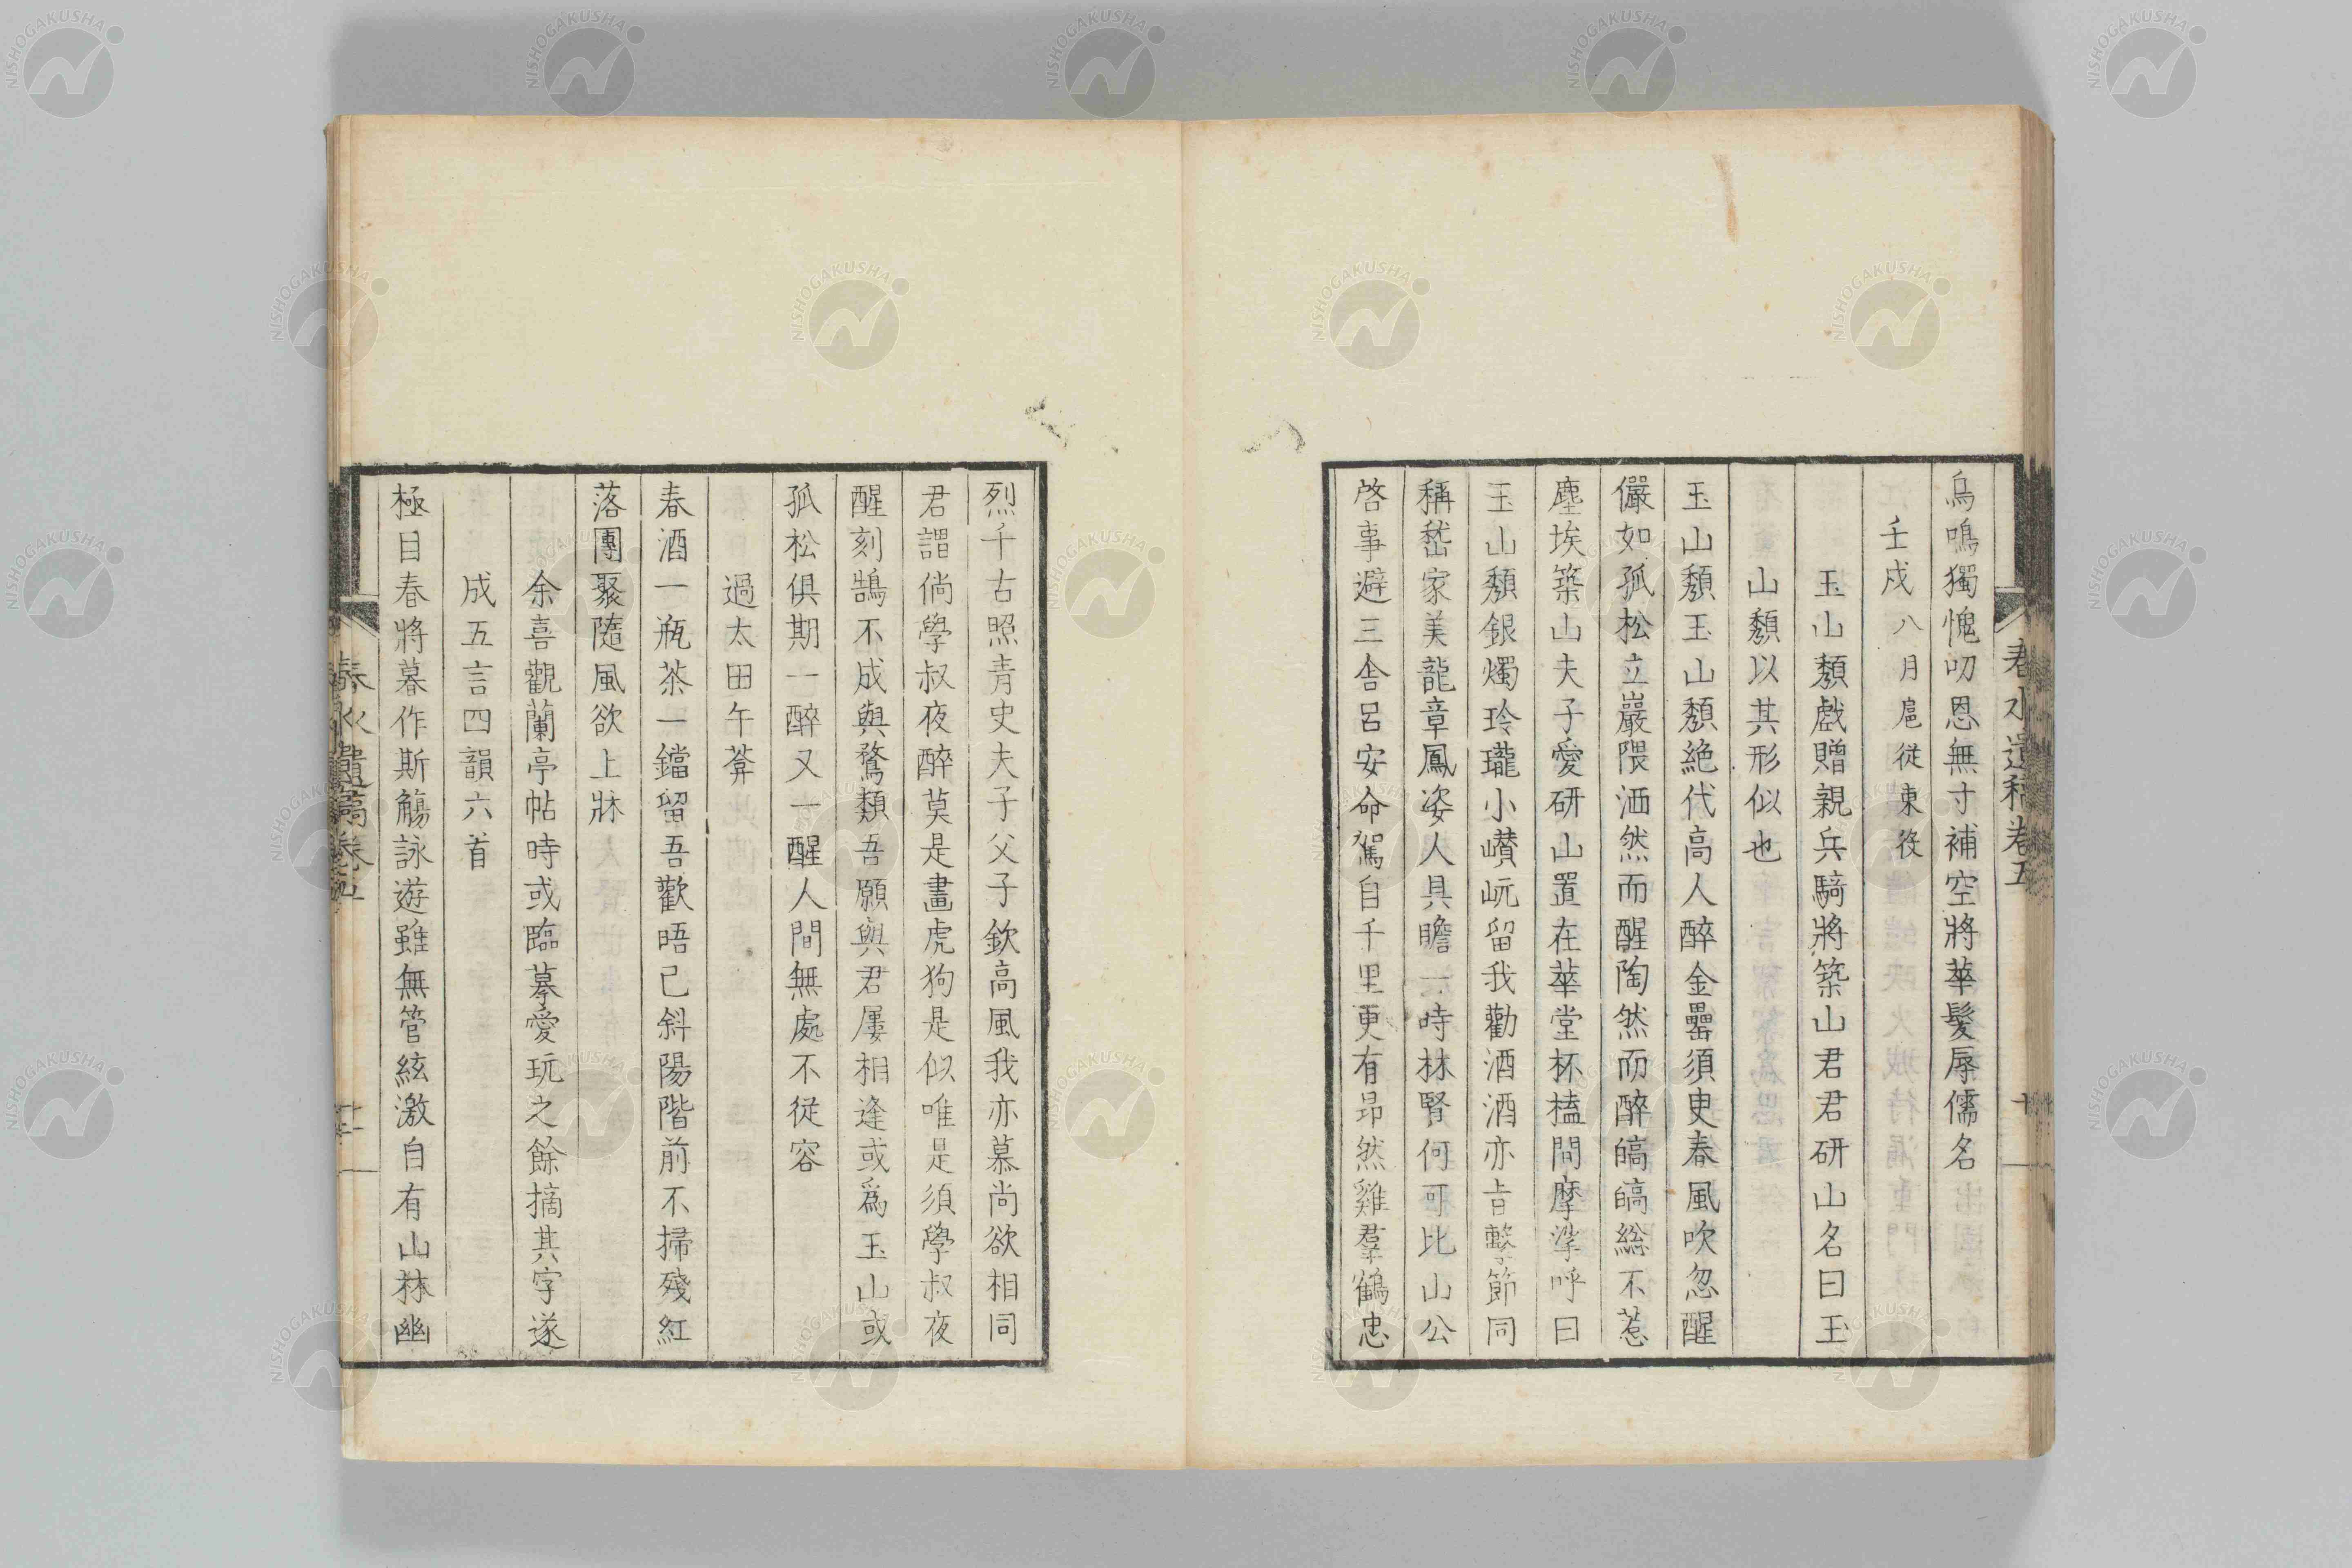 鳥鳴獨愧叨恩無寸補空將華髮辱儒名
壬戌八月扈從東役
玉山頽戲贈親兵騎將築山君君研山名曰玉
山頽以其形似也
玉山頽玉山頽絶代高人醉金罍須臾春風吹忽醒
儼如孤松立巖隈洒然而醒陶然而醉皜皜総不惹
塵埃築山夫子愛研山置在華堂杯榼間摩挲呼曰
玉山頽銀燭玲瓏小巑岏留我勸酒酒亦旨擊節同
稱嵇家美龍章鳳姿人具瞻一時林賢何可比山公
啓事避三舎呂安命駕自千里更有昻然雞羣鶴忠
春水遺稿卷五
十
烈千古照青史夫子父子欽高風我亦慕尚欲相同
君謂倘學叔夜醉莫是畫虎狗是似唯是須學叔夜
醒刻鵠不成與鶩類吾願與君屢相逢或爲玉山或
孤松倶期一醉又一醒人間無處不從容
過太田午莽
春酒一瓶茶一鐺留吾歡晤已斜陽階前不掃殘紅
落團聚隨風欲上牀
余喜觀蘭亭帖時或臨摹愛玩之餘摘其字遂
成五言四韻六首
極目春將暮作斯觴詠遊雖無管絃激自有山林幽
春水遺稿卷五